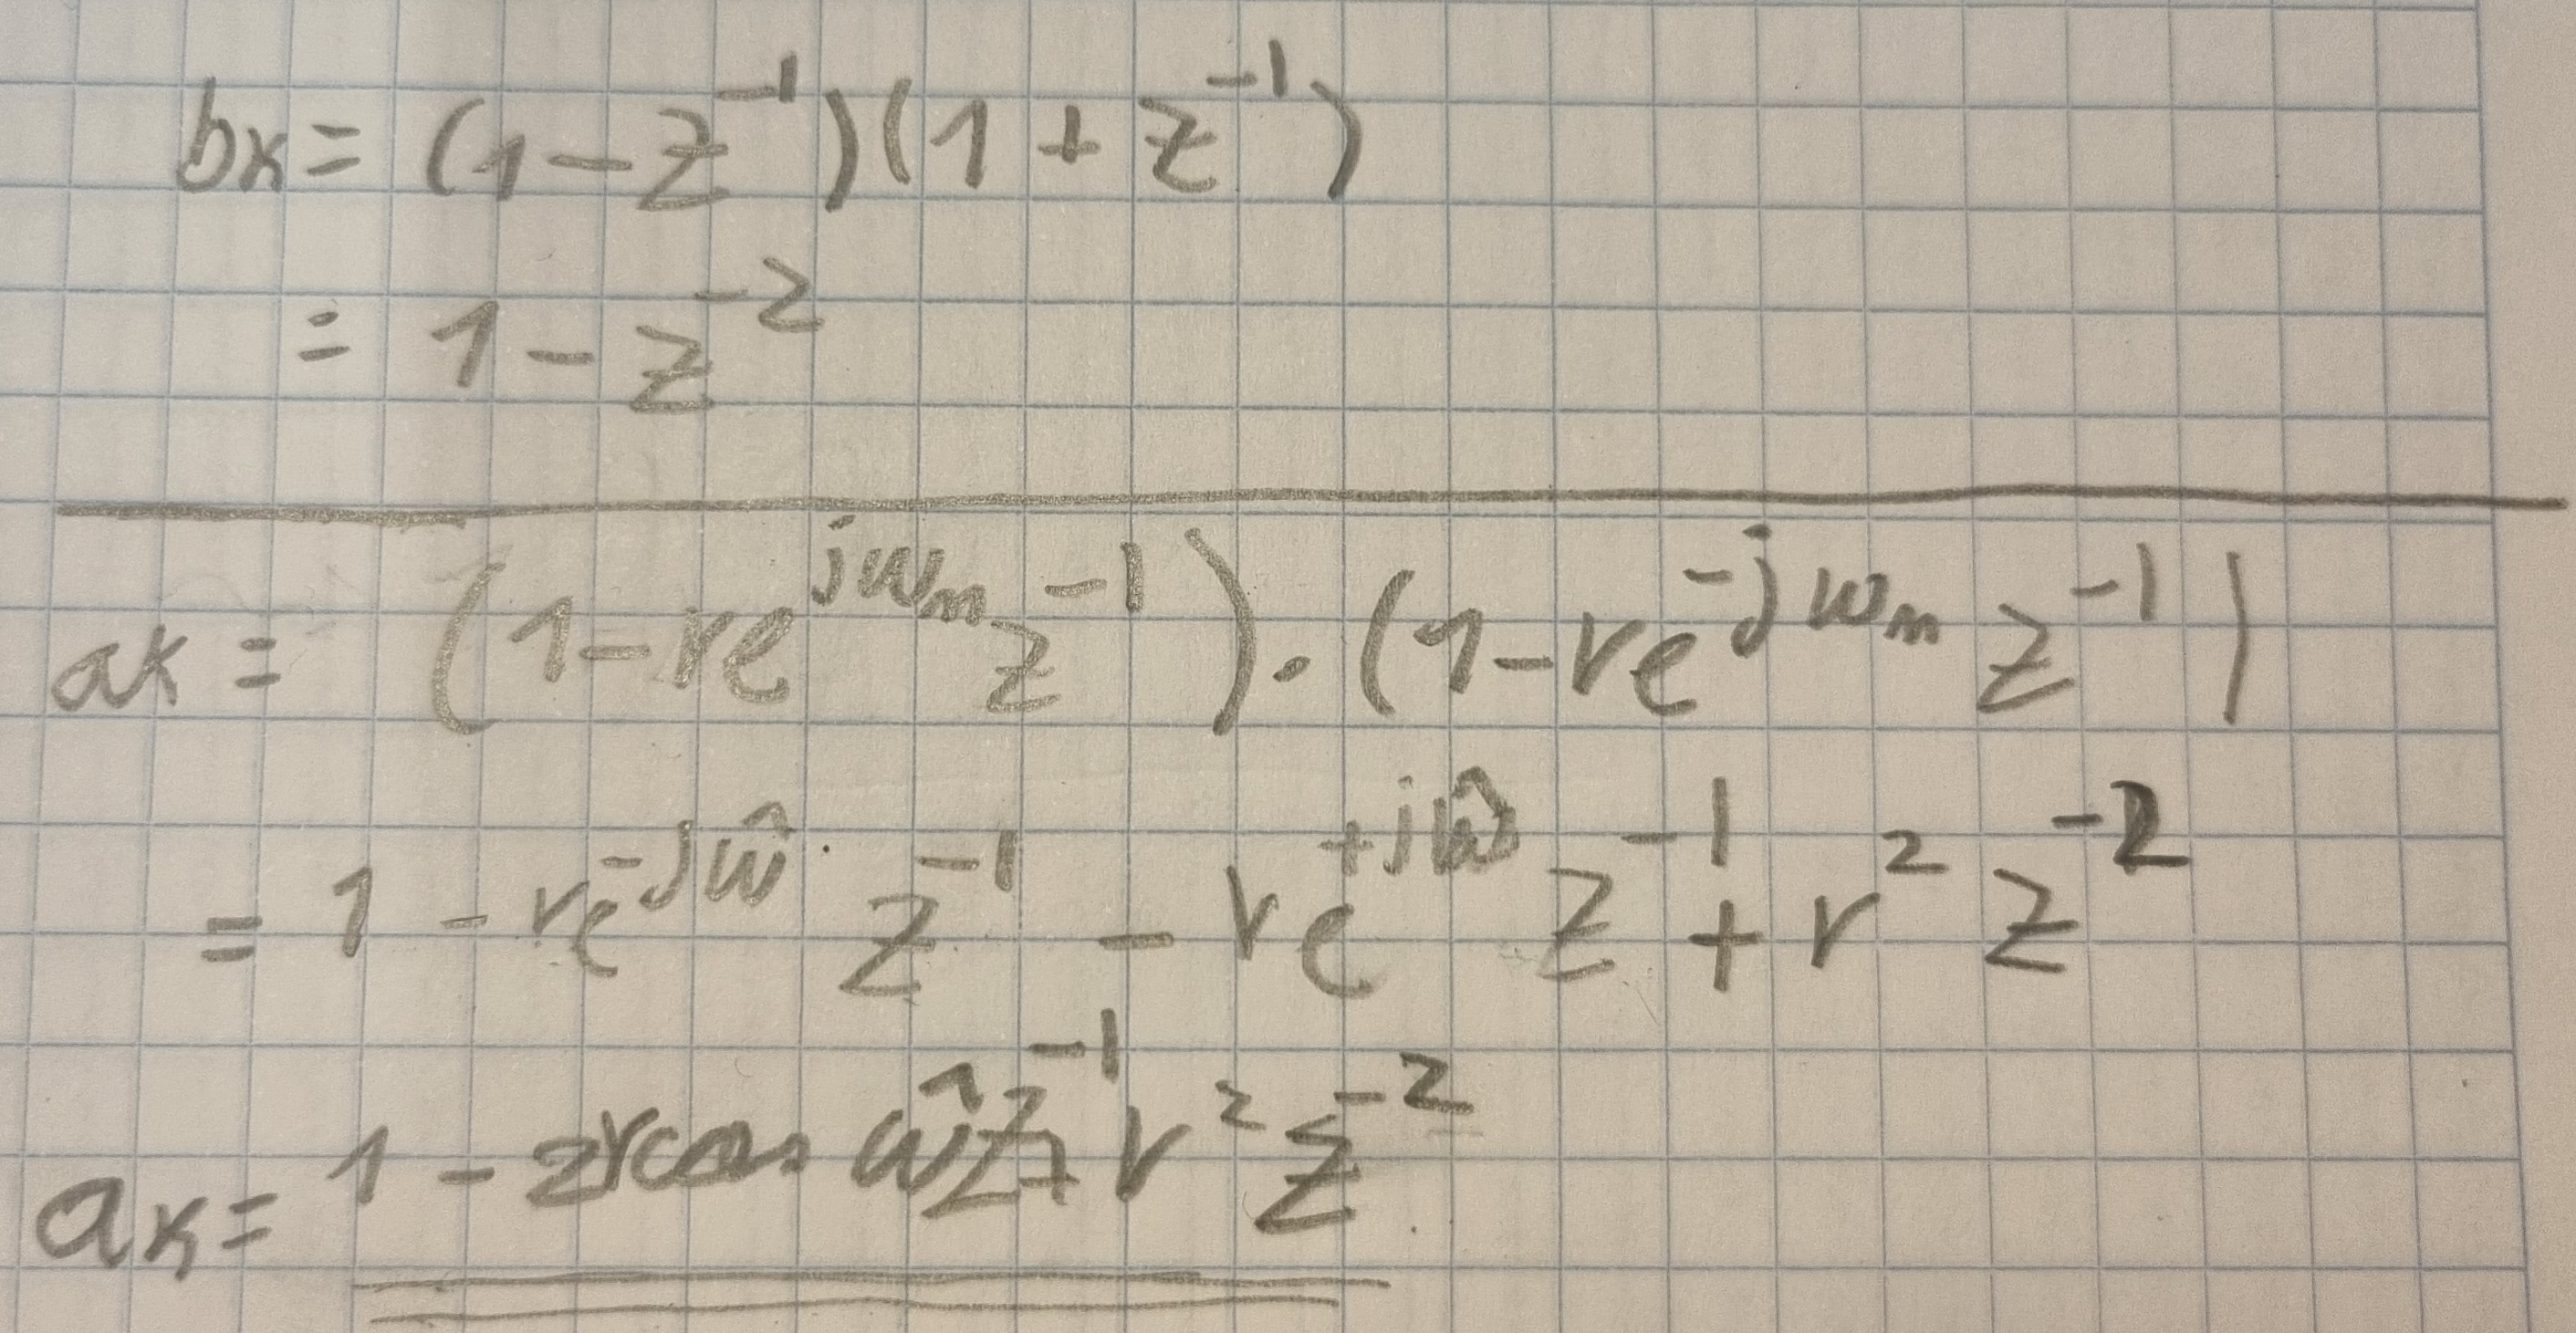 bk = (1 - z⁻¹)(1 + z⁻¹)
= 1 - z⁻²
ak = (1 - re^{jωₘ} z⁻¹) · (1 - re^{-jωₘ} z⁻¹)
= 1 - re^{-jω̂} z⁻¹ - re^{+jω̂} z⁻¹ + r² z⁻²
ak = 1 - 2r cos ω̂ z⁻¹ + r² z⁻²